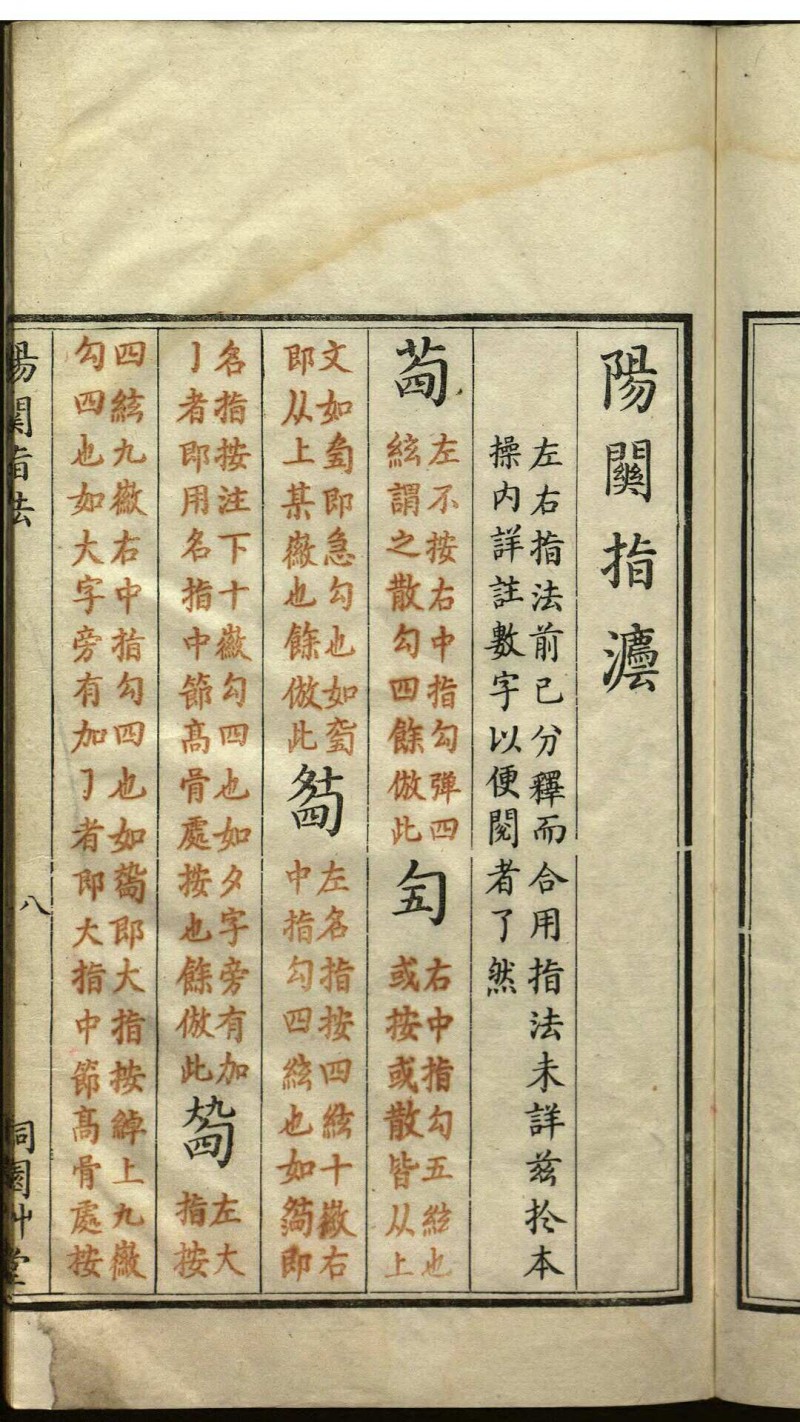 陽關指灋
左右指法前已分釋而合用指法未詳茲於本
操内詳註數字以便閱者了然
左不按右中指勾彈四
絃謂之散勾四餘倣此
右中指勾五絃也
或按或散皆从上
文如 即急勾也如
即从上某徽也餘倣此
左名指按四絃十徽右
中指勾四絃也如 即
名指按注下十徽勾四也如夕字旁有加
㇆者即用名指中節高骨處按也餘倣此
左大
指按
四絃九徽右中指勾四也如 即大指按綽上九徽
勾四也如大字旁有加㇆者即大指中節高骨處按
陽關指法
八